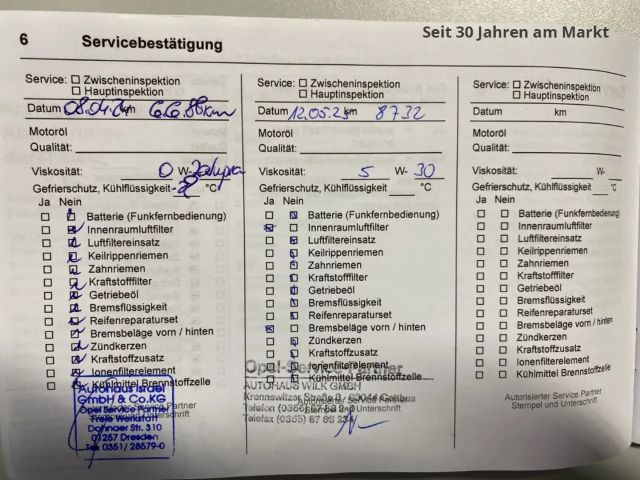 Seit 30 Jahren am Markt
6 Servicebestätigung
Service: Zwischeninspektion
Hauptinspektion
Datum 08.04.24 km 6686km
Motoröl
Qualität:
Viskosität: 0 W-
Gefrierschutz, Kühlflüssigkeit °C
Ja Nein
Batterie (Funkfernbedienung)
Innenraumluftfilter
Luftfiltereinsatz
Keilrippenriemen
Zahnriemen
Kraftstofffilter
Getriebeöl
Bremsflüssigkeit
Reifenreparaturset
Bremsbeläge vorn / hinten
Zündkerzen
Kraftstoffzusatz
Ionenfilterelement
Kühlmittel Brennstoffzelle
Autorisierter Service Partner
Stempel und Unterschrift
Autohaus Israel
GmbH & Co.KG
Opel Service Partner
Freie Werkstatt
Dohnaer Str. 310
01257 Dresden
Tel. 0351/ 28579-0
Service: Zwischeninspektion
Hauptinspektion
Datum 12.05.25 km 8732
Motoröl
Qualität:
Viskosität: 5 W- 30
Gefrierschutz, Kühlflüssigkeit °C
Ja Nein
Batterie (Funkfernbedienung)
Innenraumluftfilter
Luftfiltereinsatz
Keilrippenriemen
Zahnriemen
Kraftstofffilter
Getriebeöl
Bremsflüssigkeit
Reifenreparaturset
Bremsbeläge vorn / hinten
Zündkerzen
Kraftstoffzusatz
Ionenfilterelement
Kühlmittel Brennstoffzelle
Opel-Service Partner
AUTOHAUS WILK GMBH
Autorisierter Service Partner
Stempel und Unterschrift
Service: Zwischeninspektion
Hauptinspektion
Datum km
Motoröl
Qualität:
Viskosität: W-
Gefrierschutz, Kühlflüssigkeit °C
Ja Nein
Batterie (Funkfernbedienung)
Innenraumluftfilter
Luftfiltereinsatz
Keilrippenriemen
Zahnriemen
Kraftstofffilter
Getriebeöl
Bremsflüssigkeit
Reifenreparaturset
Bremsbeläge vorn / hinten
Zündkerzen
Kraftstoffzusatz
Ionenfilterelement
Kühlmittel Brennstoffzelle
Autorisierter Service Partner
Stempel und Unterschrift